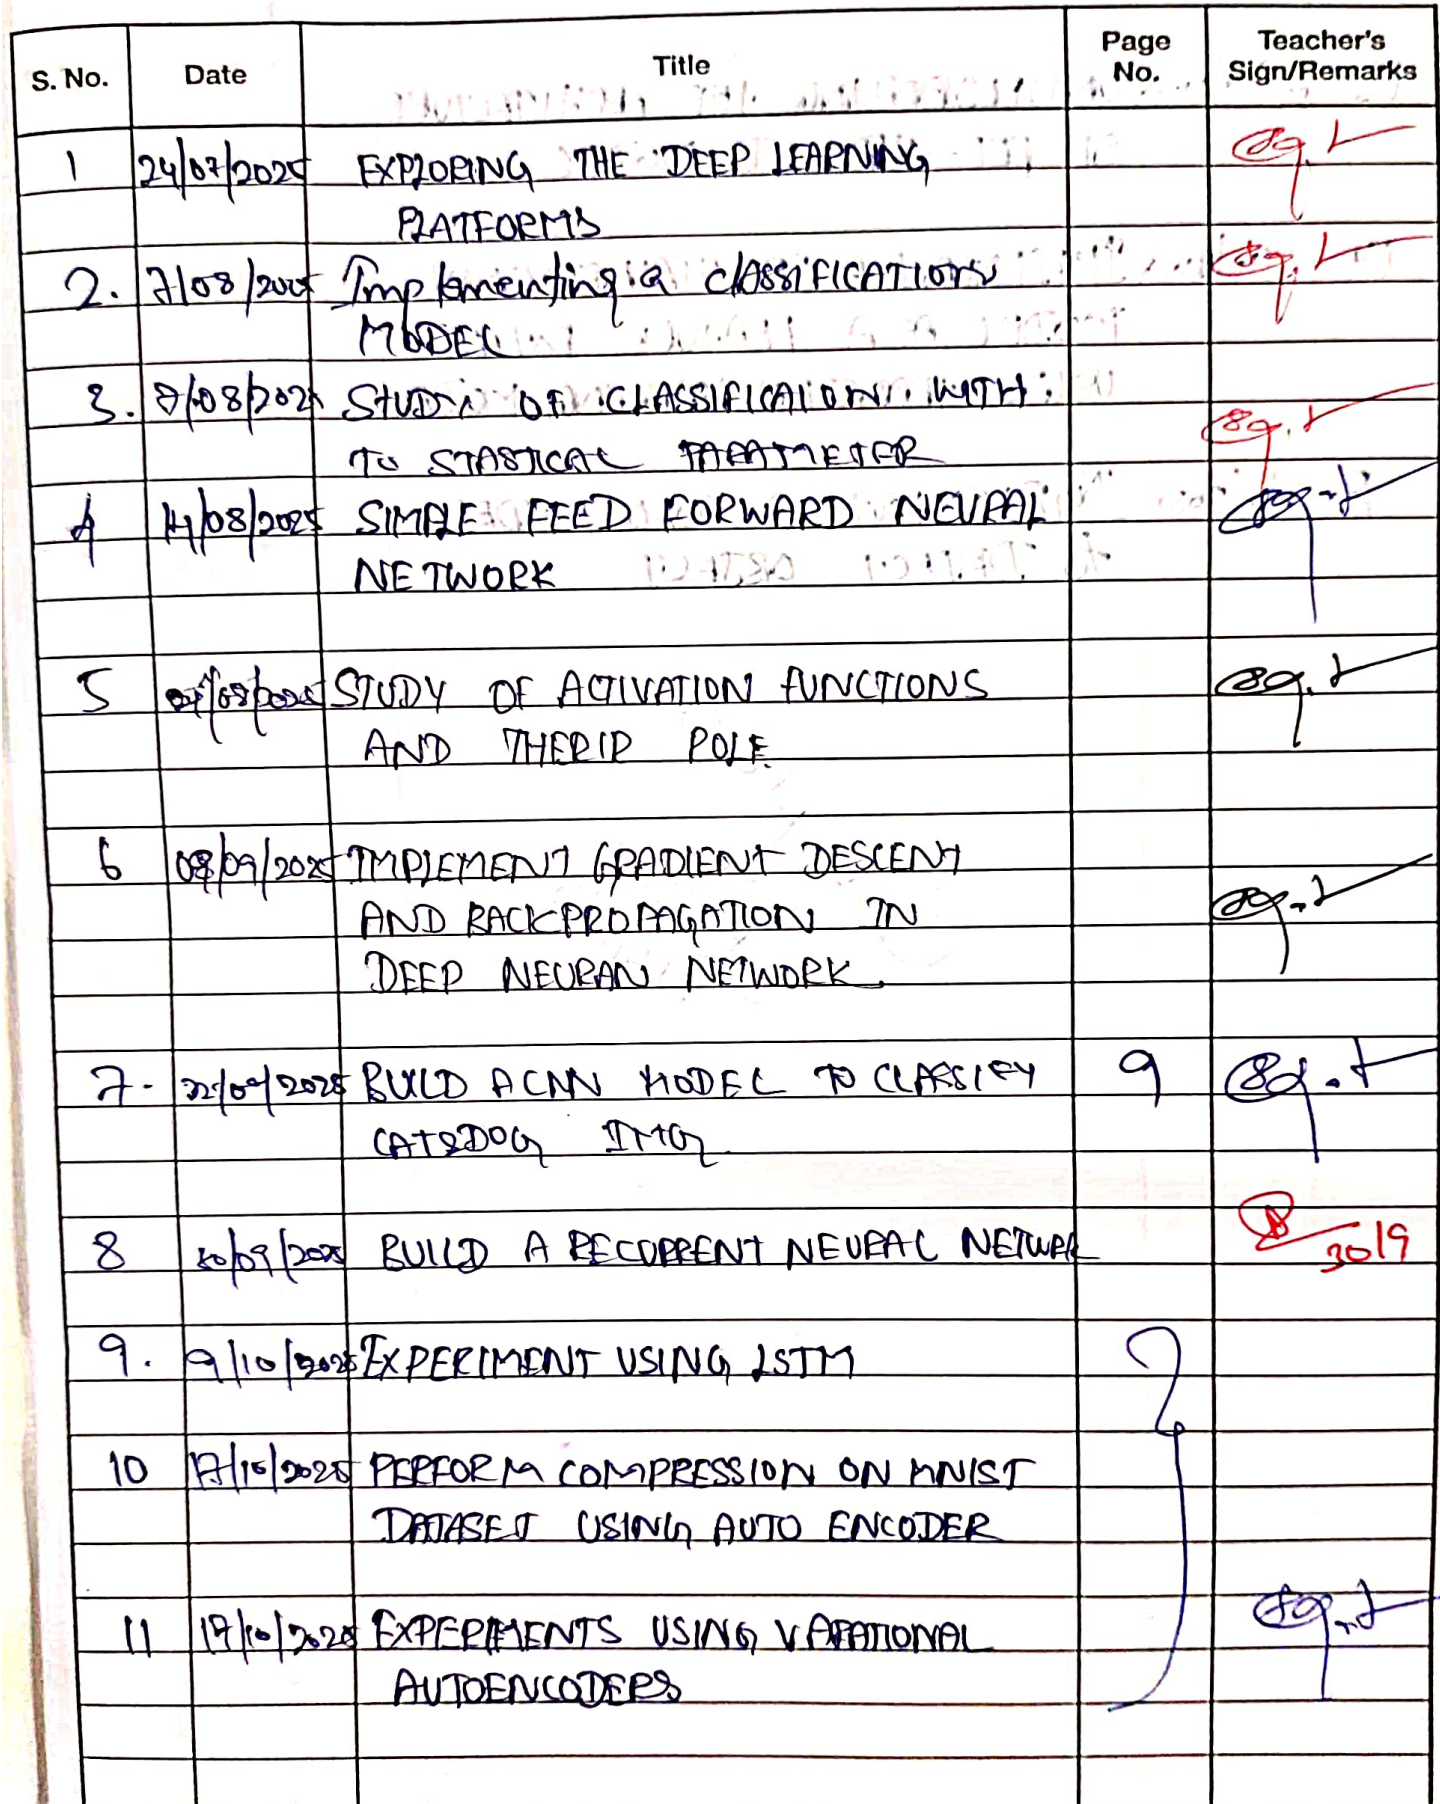 S. No. Date Title Page No. Teacher's Sign/Remarks
1 24/07/2025 EXPLORING THE DEEP LEARNING
PLATFORMS
2. 7/08/2025 Implementing a CLASSIFICATION
MODEL
3. 7/08/2025 STUDY OF CLASSIFICAION WITH
TO STASTICAL PARAMETER
4 14/08/2025 SIMPLE FEED FORWARD NEURAL
NETWORK
5 STUDY OF ACTIVATION FUNCTIONS
AND THERIR ROLE
6 09/2025 IMPLEMENT GRADIENT DESCENT
AND BACKPROPAGATION IN
DEEP NEURAN NETWORK.
7. 22/09/2025 BUILD A CNN MODEL TO CLASSIFY 9
CAT&DOG IMG
8 30/09/2025 BUILD A RECURRENT NEURAL NETWRK
30/9
9. 9/10/2025 EXPERIMENT USING LSTM
10 17/10/2025 PERFORM COMPRESSION ON MNIST
DATASET USING AUTO ENCODER
11 17/10/2025 EXPERIMENTS USING VARATIONAL
AUTOENCODERS